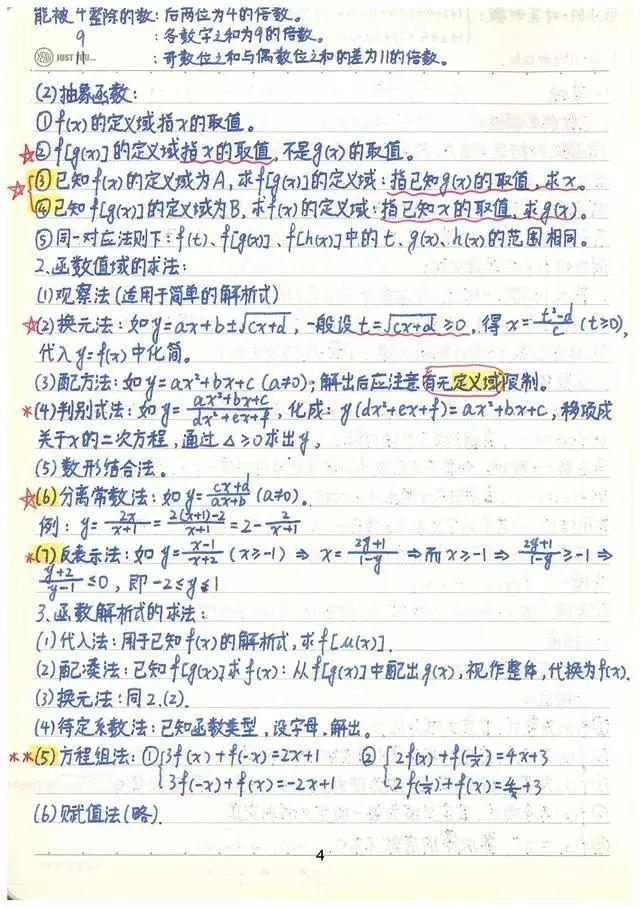 能被4整除的数:后两位为4的倍数。
9 :各数字之和为9的倍数。
JUST YOU... :奇数位之和与偶数位之和的差为11的倍数。
(2)抽象函数:
①f(x)的定义域指x的取值。
☆②f[g(x)]的定义域指x的取值,不是g(x)的取值。
☆③已知f(x)的定义域为A,求f[g(x)]的定义域:指已知g(x)的取值,求x。
④已知f[g(x)]的定义域为B,求f(x)的定义域:指已知x的取值,求g(x)。
⑤同一对应法则下:f(t)、f[g(x)]、f[h(x)]中的t、g(x)、h(x)的范围相同。
2.函数值域的求法:
(1)观察法(适用于简单的解析式)
☆(2)换元法:如y=ax+b±√(cx+d),一般设t=√(cx+d)≥0,得x=(t²-d)/c (t≥0),
代入y=f(x)中化简。
(3)配方法:如y=ax²+bx+c(a≠0);解出后应注意有无定义域限制。
*(4)判别式法:如y=(ax²+bx+c)/(dx²+ex+f),化成:y(dx²+ex+f)=ax²+bx+c,移项成
关于x的二次方程,通过△≥0求出y。
(5)数形结合法。
☆(6)分离常数法:如y=(cx+d)/(ax+b)(a≠0)。
例:y=2x/(x+1)=(2(x+1)-2)/(x+1)=2-2/(x+1)
*(7)反表示法:如y=(x-1)/(x+2)(x≥-1)⇒x=(2y+1)/(1-y)⇒而x≥-1⇒(2y+1)/(1-y)≥-1⇒
(y+2)/(y-1)≤0,即-2≤y<1
3.函数解析式的求法:
(1)代入法:用于已知f(x)的解析式,求f[μ(x)].
(2)配凑法:已知f[g(x)]求f(x):从f[g(x)]中配出g(x),视作整体,代换为f(x).
(3)换元法:同2.(2).
(4)待定系数法:已知函数类型,设字母,解出。
**(5)方程组法:①{3f(x)+f(-x)=2x+1 ②{2f(x)+f(1/x)=4x+3
3f(-x)+f(x)=-2x+1 2f(1/x)+f(x)=4/x+3
(6)赋值法(略).
4